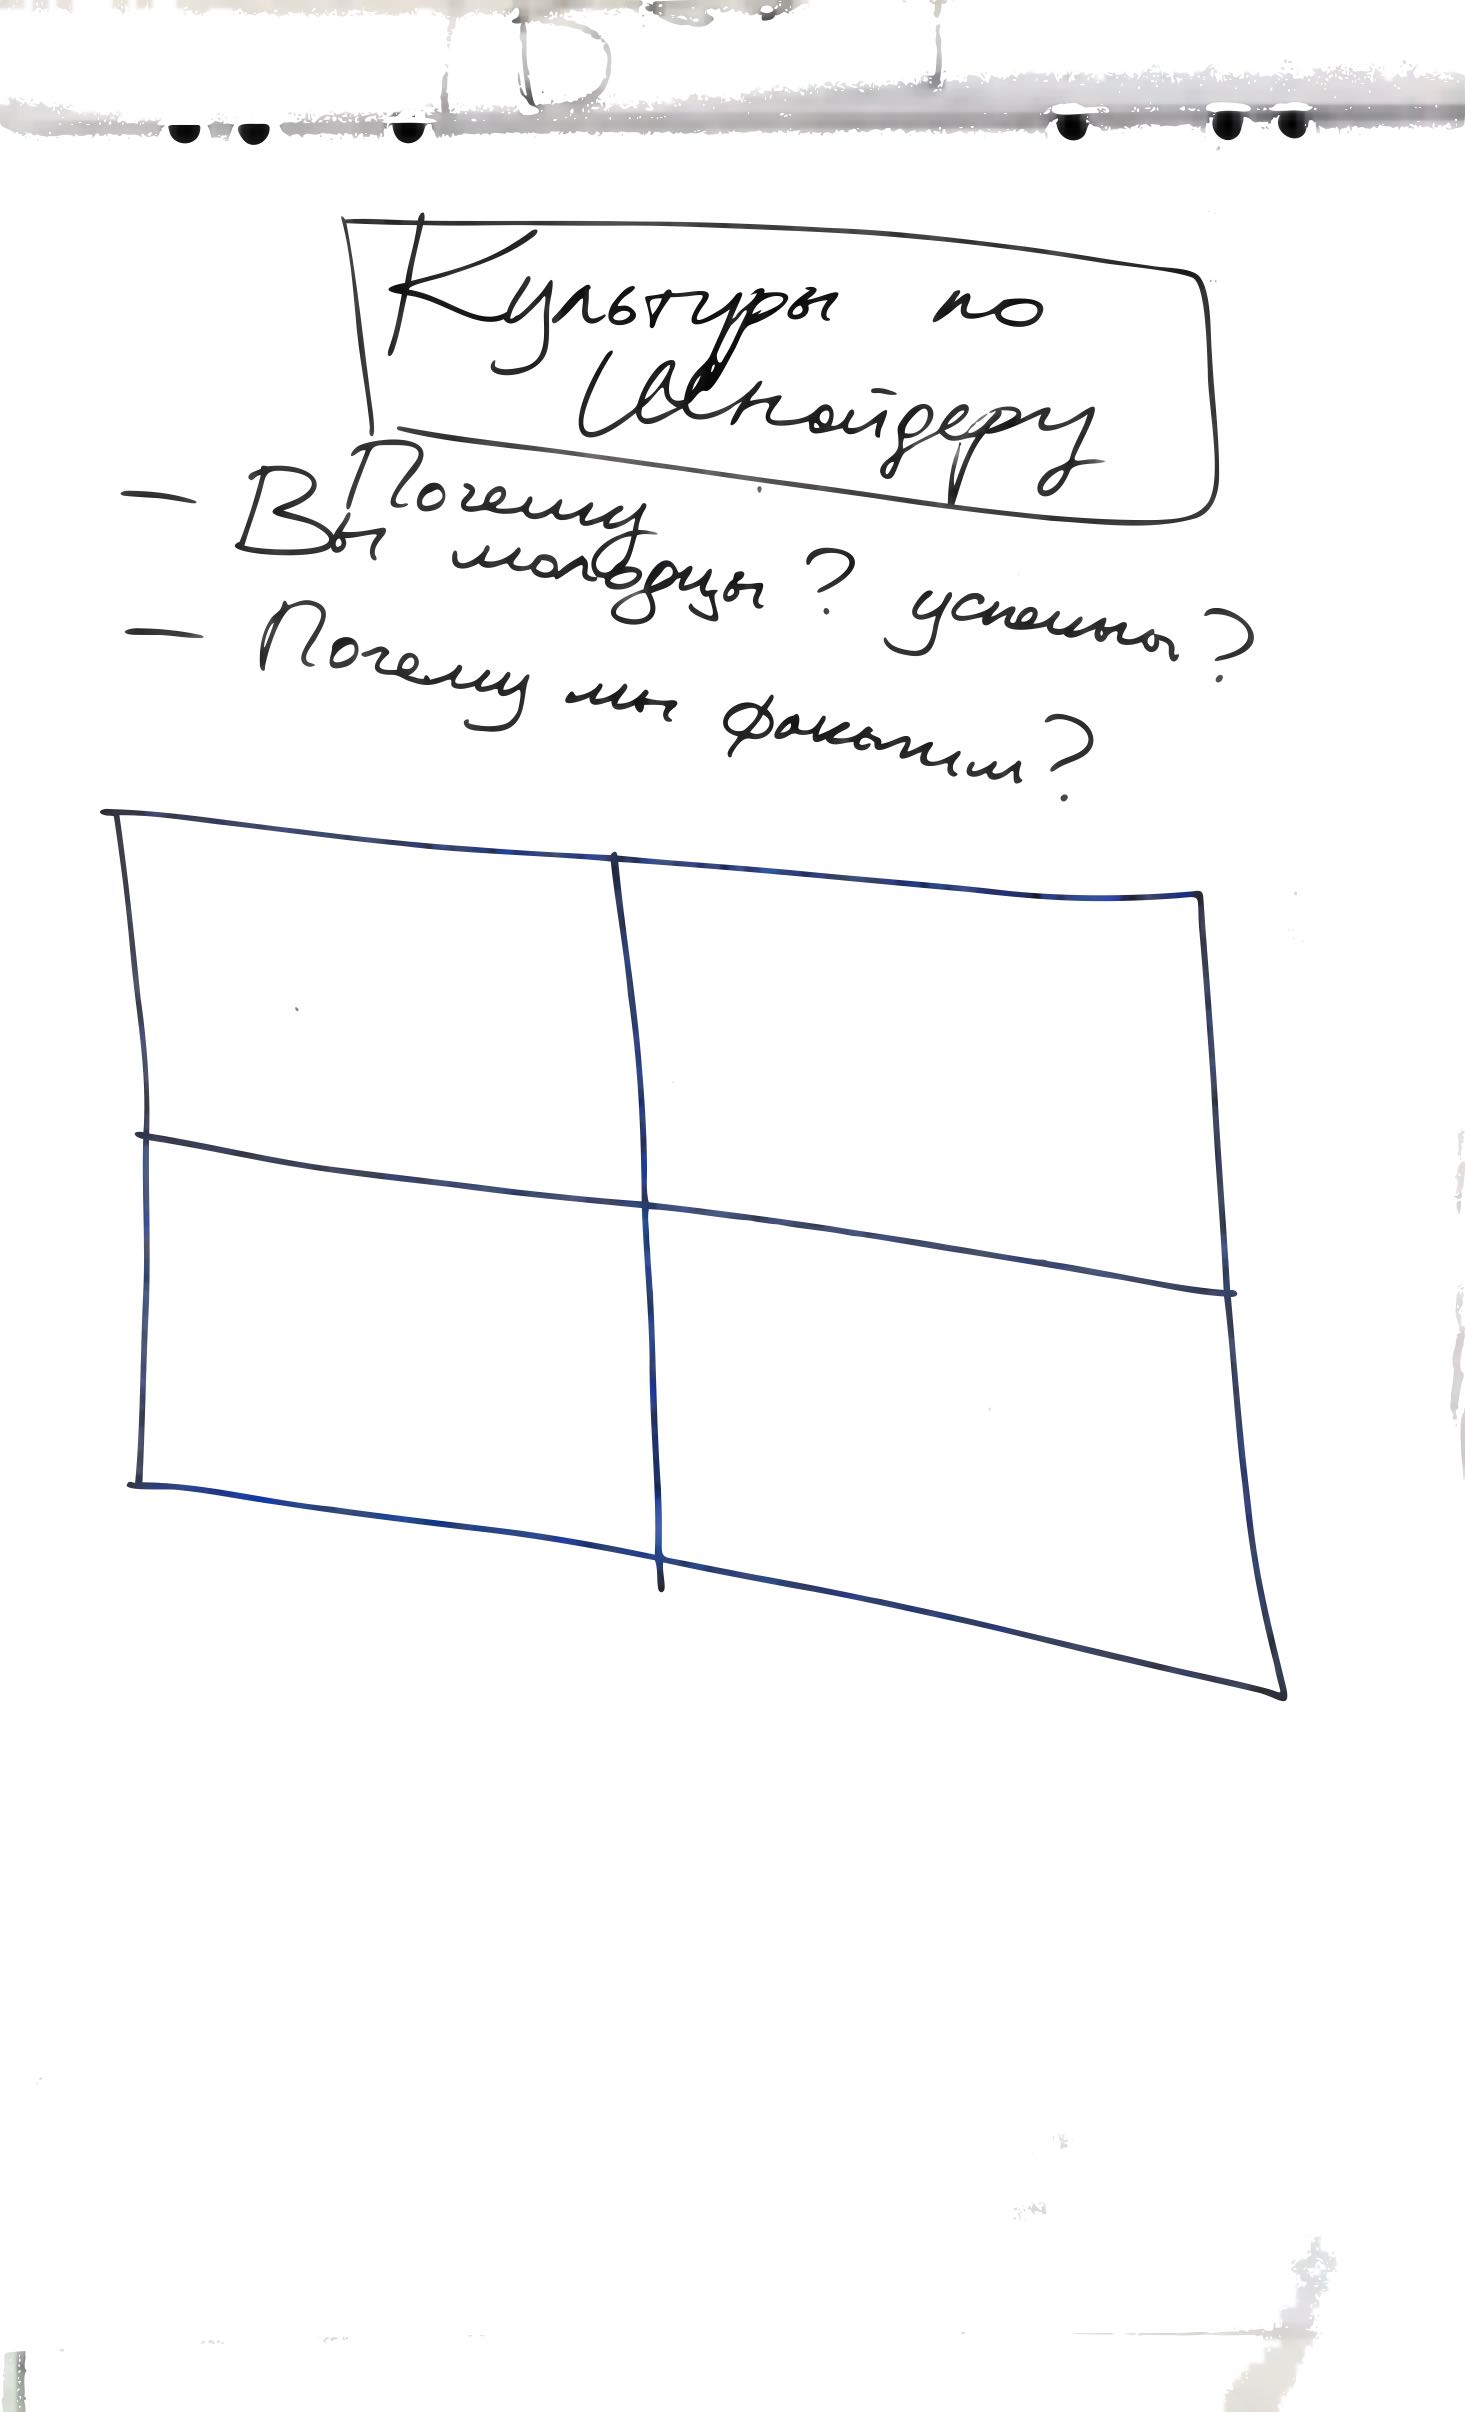 Культуры по
Шнайдеру
— Почему
Вы молодцы? успешны?
— Почему мы факапим?